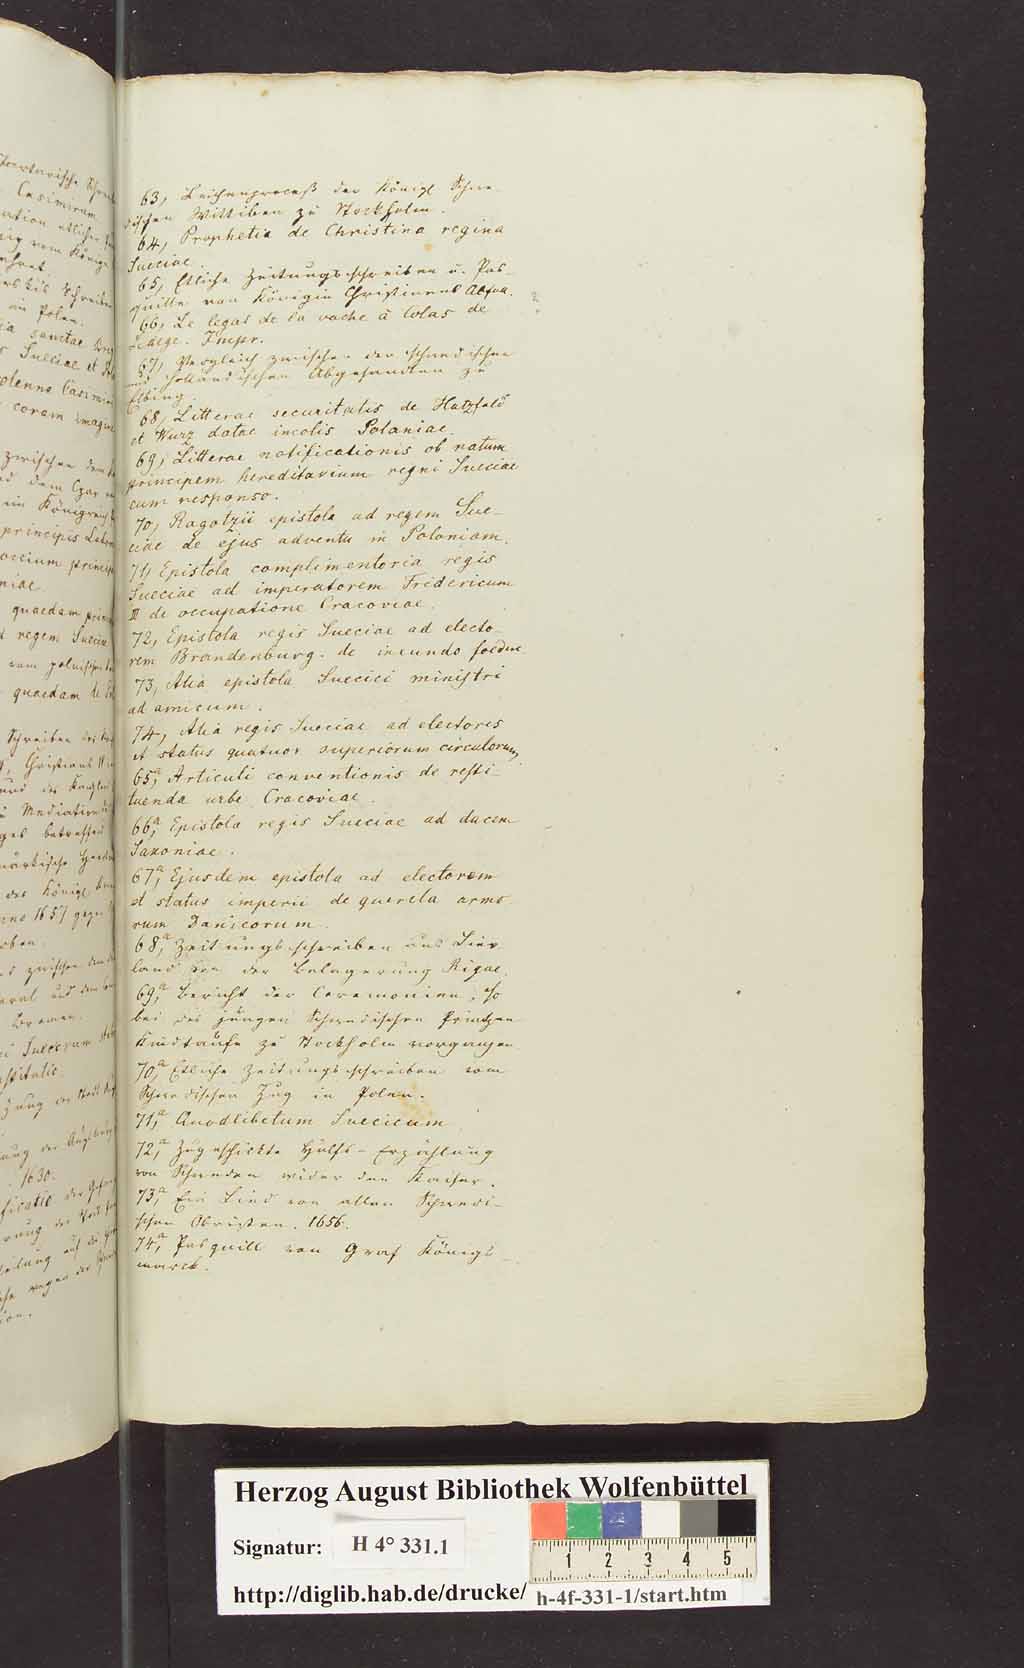 63, Leichenproceß der Königl Schwe-
dischen Wittiben zu Stockholm.
64, Prophetia de Christina regina
Sueciae.
65, Etliche Zeitungsschreiben u. Pas-
quille von Königin Christinens
66, Le legas de la vache à Colas de
Impr.
67, Vergleich zwischen den schwedischen
und holländischen Abgesandten zu
Elbing.
68, Litterae securitatis de Hatzfeld
et Wurz datae incolis Polaniae.
69, Litterae notificationis ob natum
principem hereditarium regni Sueciae
cum responso.
70, Ragotzii epistola ad regem Sue-
ciae de ejus adventu in Poloniam.
71, Epistola complimentoria regis
Sueciae ad imperatorem Fridericum
III de occupatione Cracoviae.
72, Epistola regis Sueciae ad electo-
rem Brandenburg. de ineundo foedere
73, Alia epistola Suecici ministri
ad amicum.
74, Alia regis Sueciae ad electores
et status quatuor superiorum circulorum,
65,a Articuli conventionis de resti-
tuenda urbe Cracoviae.
66,a Epistola regis Sueciae ad ducem
Saxoniae.
67,a Ejusdem epistola ad electorem
et status imperii de querela armo-
rum Danicorum.
68,a Zeitungsschreiben aus Lief-
land von der Belagerung Rigae.
69,a Bericht der Ceremonien, so
bei des jungen Schwedischen Printzen
Kindtaufe zu Stockholm vorgangen
70,a Etliche Zeitungsschreiben vom
Schwedischen Zug in Polen.
71,a Quodlibetum Suecicum
72,a Zugeschickte Hülfs-Erzählung
von Schweden wider den Kaiser.
73,a Ein Lied von allen Schwedi-
schen Obristen. 1656.
74,a Pasquill von Graf Königs-
marck.
Herzog August Bibliothek Wolfenbüttel
Signatur: H 4° 331.1
1 2 3 4 5
http://diglib.hab.de/drucke/ h-4f-331-1/start.htm